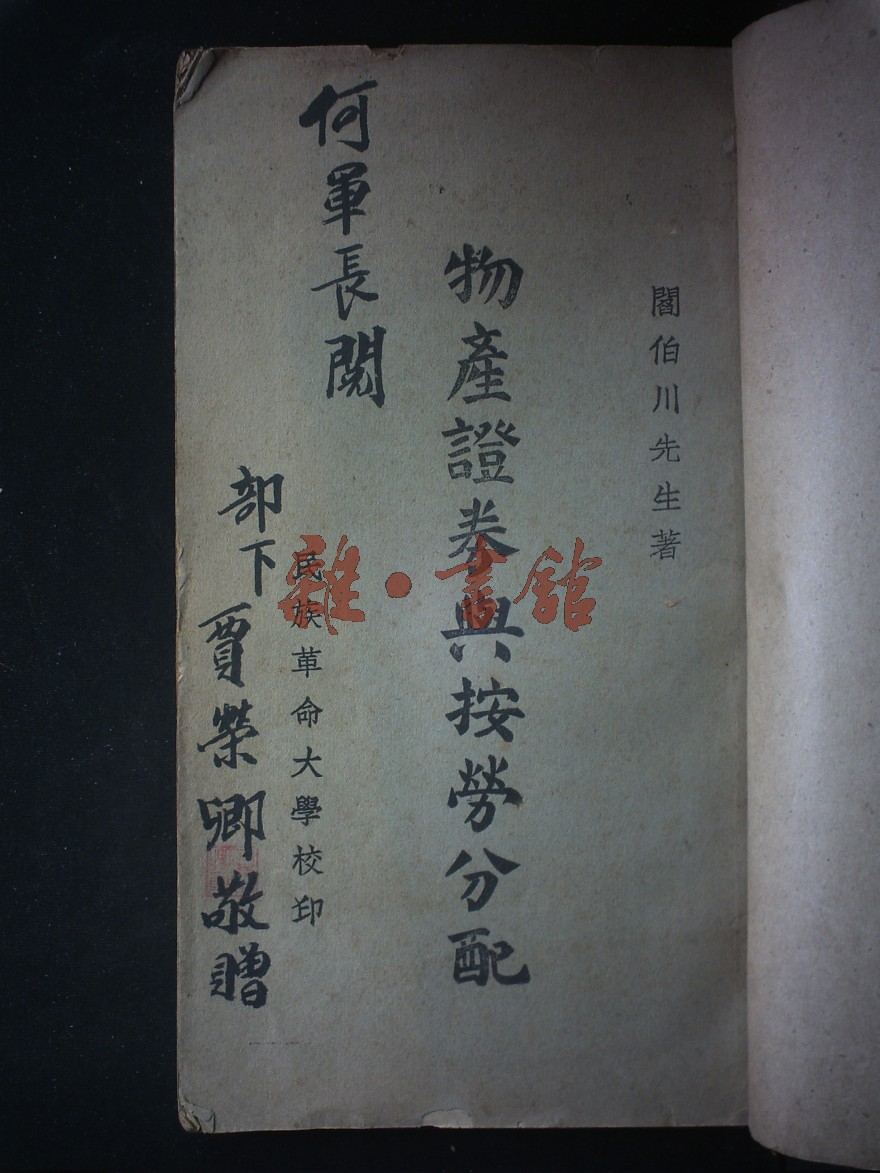 閻伯川先生著
物產證券與按勞分配
何軍長閱
民族革命大學校印
部下賈榮卿敬贈
雜·書館